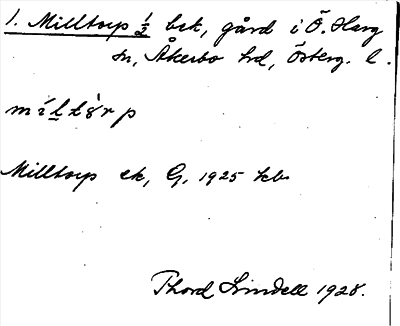 1. Milltorp 1/2 bck, gård i Ö. Harg
sn, Åkerbo hd, Österg. l.
Milltorp ek, G, 1925 kb
Thord Lindell 1928.